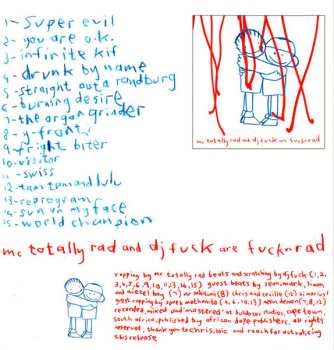 1- super evil
2- you are o.k.
3- infinite kif
4- drunk by name
5- straight outa randburg
6- burning desire
7- the organ grinder
8- y-fronty
9- fright biter
10- visitor
11- swiss
12- tam tam and lulu
13- reprogram
14- sun on my face
15- world champion
mc totally rad and dj fuck are fucknrad
mc totally rad and dj fuck are fucknrad
rapping by mc totally rad beats and scratching by dj fuck (1, 2,
guest beats by
cape town,
south africa. published by african dope publishers. all rights
reserved. thank you to chris, and roach for activating
this release